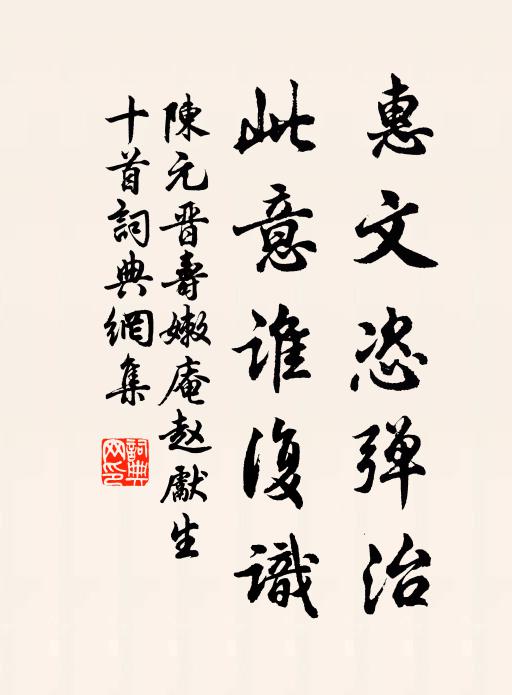 惠文恣弹治
此意谁復識
陳元晋壽嫩庵赵獻生
十首詞典網集
詞典网印